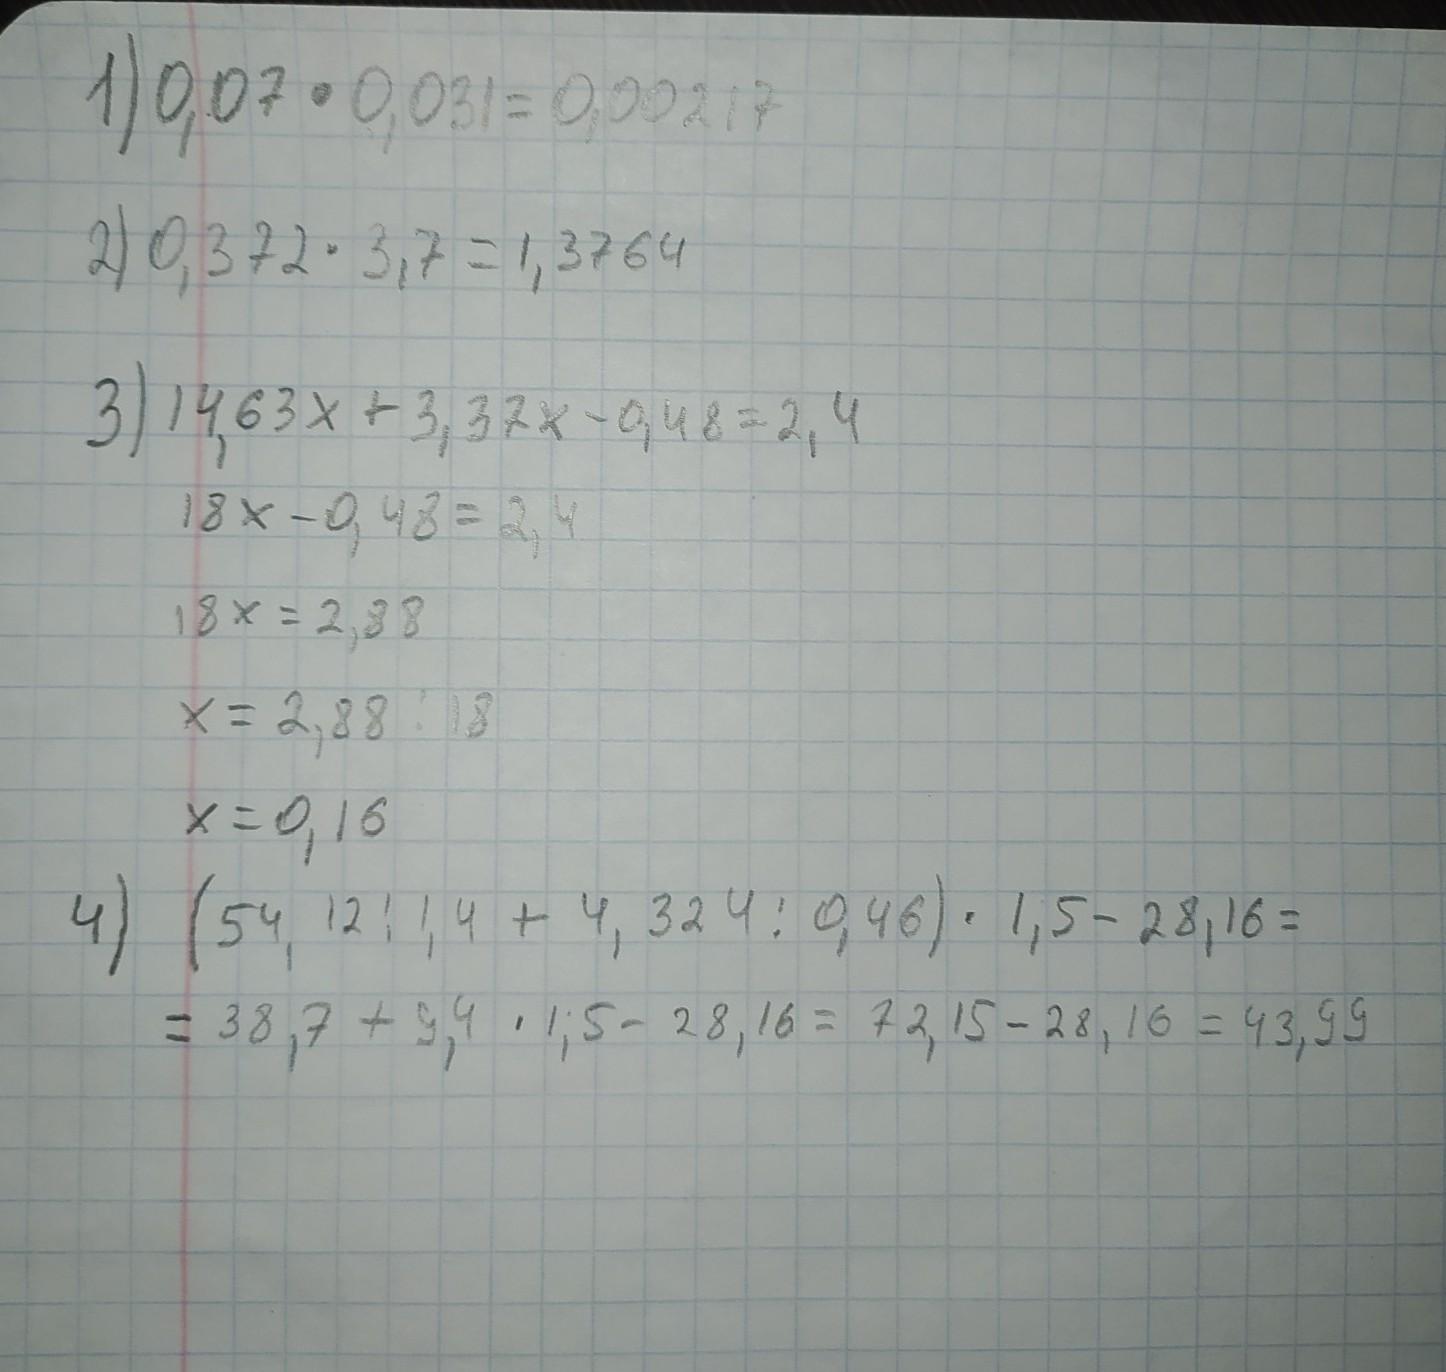 1) 0,07 • 0,031 = 0,00217
2) 0,372 · 3,7 = 1,3764
3) 14,63x + 3,37x - 0,48 = 2,4
18x - 0,48 = 2,4
18x = 2,88
x = 2,88 : 18
x = 0,16
4) (54,12 : 1,4 + 4,324 : 0,46) · 1,5 - 28,16 =
= 38,7 + 9,4 · 1,5 - 28,16 = 72,15 - 28,16 = 43,99